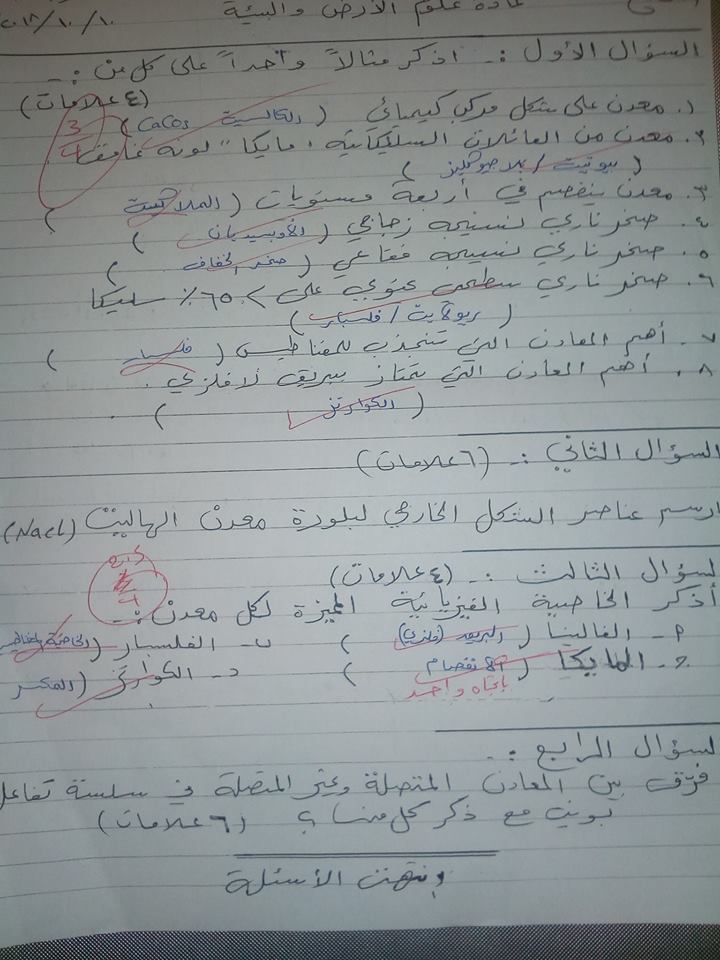 مادة علوم الأرض والبيئة ٢٠١٨/١٠/١٠
السؤال الأول :- اذكر مثالاً واحداً على كل من :-
(٤ علامات)
3
4
١. معدن على شكل مركب كيميائي ( الكالسيت CaCo3 )
٢. معدن من العائلات السليكاتية "مايكا" لونه غامق
( بيوتيت / بلاجوكليز )
٣. معدن ينفصم في أربعة مستويات ( الملاكيت )
٤. صخر ناري نسيجه زجاجي ( الأوبسيديان )
٥. صخر ناري نسيجه فقاعي ( صخر الخفاف )
٦. صخر ناري سطحي يحتوي على > ٦٥٪ سليكا
( ريولايت / فلسبار )
٧. أهم المعادن التي تنجذب للمغناطيس ( فلسبار )
٨. أهم المعادن التي تمتاز ببريق لافلزي .
( الكوارتز )
السؤال الثاني :- (٦ علامات)
ارسم عناصر الشكل الخارجي لبلورة معدن الهاليت (Nacl)
لسؤال الثالث :- (٤ علامات)
4
أذكر الخاصية الفيزيائية المميزة لكل معدن :-
أ- الغالينا ( البريق (فلزي) ) ب- الفلسبار (الخاصية المغناطي
ج- المايكا ( الانفصام ) د- الكوارتز (المكسر
باتجاه واحد
لسؤال الرابع :-
فرّق بين المعادن المتصلة وغير المتصلة في سلسلة تفاعل
بوين مع ذكر كل منها ؟ (٦ علامات)
انتهت الأسئلة